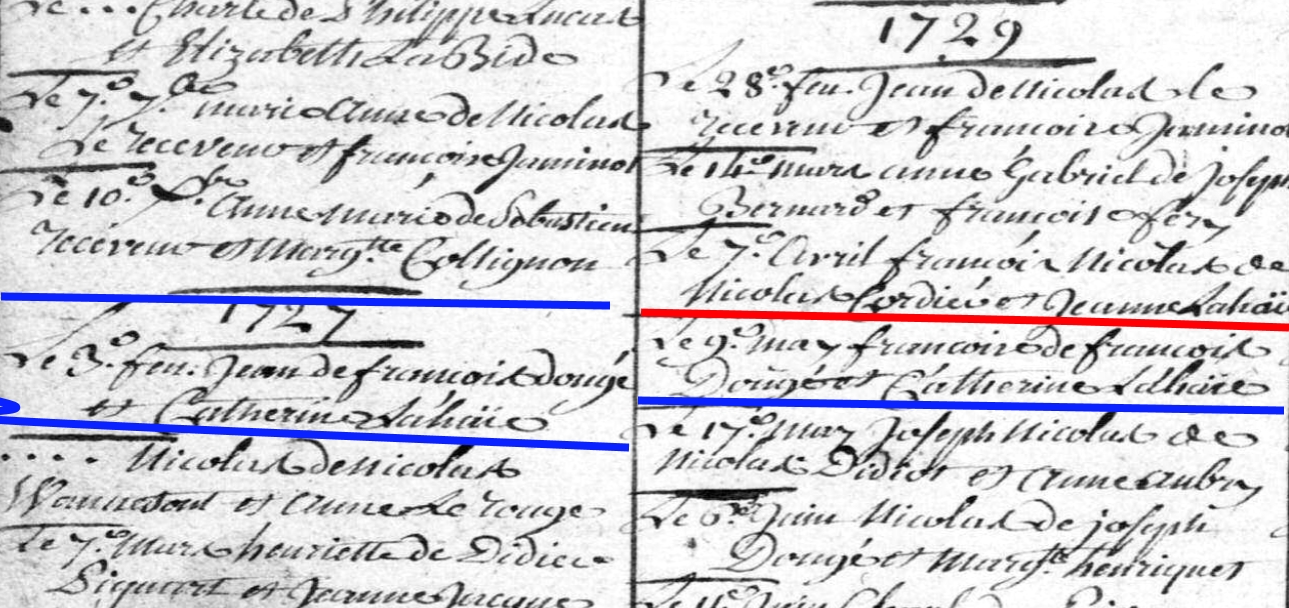 Le ... Charle de Philippe Lucas
et Elizabeth La Bide
Le 7.e 7.bre marie Anne de Nicolas
Le receveur et francoise Jaminot
Le 10.e Anne Marie de Sebastien
receveur et Marg.tte Collignon
1727
Le 3.e feu. Jean de francois dougé
et Catherine Lahaïe
.... Nicolas de nicolas
et Anne Le rouge
Le 7.e Mars henriette de Didier
et Jeanne Jacques
1729
Le 28.e feu. Jean de Nicolas le
receveur et francoise Jaminot
Le 14.e mars anne Gabriel de Joseph
Bernard et francoise fery
Le 7.e Avril francois Nicolas de
Nicolas Cordié et Jeanne Lahaïe
Le 9.e may francoise de francois
Dougé et Catherine Lahaïe
Le 17.e may Joseph Nicolas de
Nicolas Didiot et Anne aubry
Le 6.e Juin Nicolas de joseph
Dougé et Marg.te henriquet
Juin